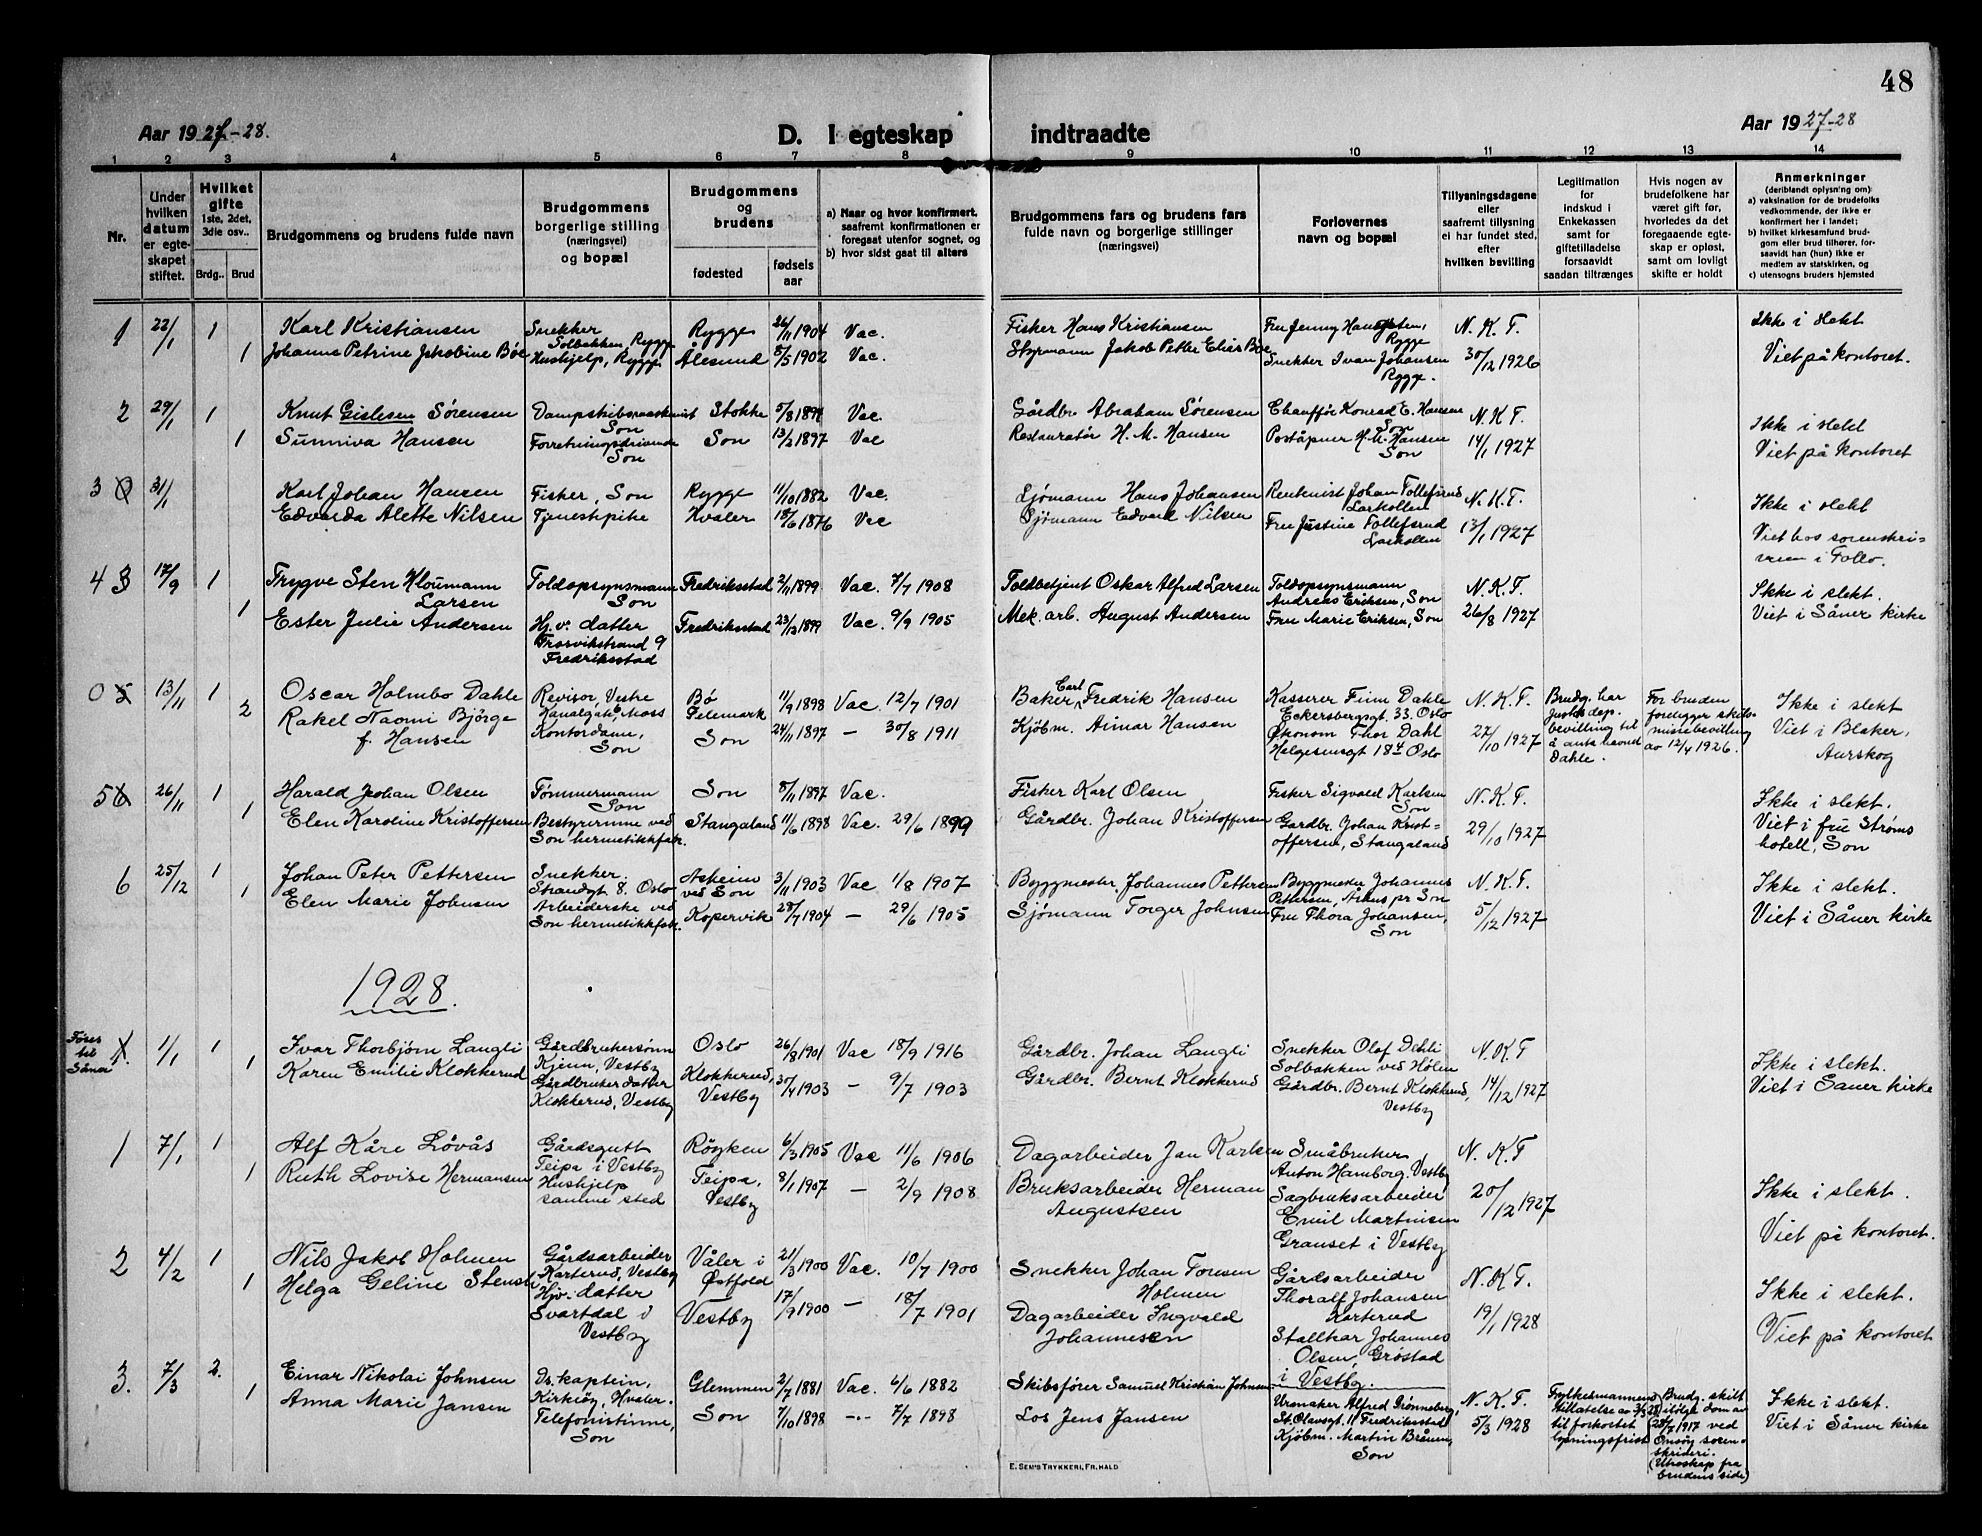 48
Aar 1927-28.
D. I egteskap indtraadte
Aar 1927-28
1 2 3 4 5 6 7 8 9 10 11 12 13 14
Nr.
Under hvilken datum er egteskapet stiftet.
Hvilket gifte 1ste, 2det, 3die osv..
Brdg.. Brud
Brudgommens og brudens fulde navn
Brudgommens borgerlige stilling (næringsvei) og bopæl
Brudgommens og brudens
fødested
fødsels aar
a) Naar og hvor konfirmert, saafremt konfirmationen er foregaat utenfor sognet, og
b) hvor sidst gaat til alters
Brudgommens fars og brudens fars fulde navn og borgerlige stillinger (næringsvei)
Forlovernes navn og bopæl
Tillysningsdagene eller saafremt tillysning ei har fundet sted, efter hvilken bevilling
Legitimation for indskud i Enkekassen samt for giftetilladelse forsaavidt saadan tiltrænges
Hvis nogen av brudefolkene har været gift før, hvorledes da det foregaaende egteskap er opløst, samt om lovligt skifte er holdt
Anmerkninger (deriblandt oplysning om):
a) vaksination for de brudefolks vedkommende, der ikke er konfirmert her i landet;
b) hvilket kirkesamfund brudgom eller brud tilhører, forsaavidt han (hun) ikke er medlem av statskirken, og
c) utensogns bruders hjemsted
1 22/1 1 Karl Kristiansen Snekker Solbakken, Rygge Rygge 26/11 1904 Vac. Fisker Hans Kristiansen Fru Jenny Hansten, Rygge N. K. T. Ikke i slekt
1 Johanne Petrine Jakobine Bøe Hushjelp, Rygge Ålesund 5/5 1902 Vac. Styrmann Jakob Petter Elias Bøe Snekker Ivan Johansen Rygge. 30/12 1926 Viet på kontoret.
2 29/1 1 Knut Gislesen Sørensen Dampskibsmaskinist Son Stokke 5/8 1894 Vac. Gårdbr. Abraham Sørensen Chauffør Konrad E. Hansen Son N. K. T. Ikke i slekt
1 Sunniva Hansen Forretningsdrivende Son Son 13/2 1897 Vac Restauratør H. M. Hansen Poståpner H. M. Hansen Son 14/1 1927 Viet på kontoret
3 31/1 Karl Johan Hansen Fisker, Son Rygge 11/10 1882 Vac. Sjømann Hans Johansen Rentenist Johan Tollefsrud Larkollen N. K. T. Ikke i slekt
Edvarda Alette Nilsen Tjenestpike Hvaler 18/6 1876 Vac Sjømann Edvard Nilsen Fru Justine Tollefsrud Larkollen 13/1 1927 Viet hos sorenskriveren i Follo.
4 3 17/9 1 Trygve Sten Kloumann Larsen Toldopsynsmann Son Fredriksstad 2/11 1899 Vac. 7/7 1908 Toldbetjent Oskar Alfred Larsen Toldopsynsmann Andreas Eriksen, Son N. K. T. Ikke i slekt.
1 Ester Julie Andersen Hjv. datter Trosvikstrand 9 Fredriksstad Fredriksstad 23/12 1899 Vac. 9/9 1905 Mek. arb. August Andersen Fru Marie Eriksen, Son 26/8 1927 Viet i Såner kirke
0 5 13/11 1 Oscar Holmbo Dahle Revisor, Vestre Kanalgate 6, Moss Bø Telemark 11/9 1898 Vac. 12/7 1901 Baker, Carl Fredrik Hansen Kasserer Finn Dahle Eckersbergsgt. 33. Oslo N. K. T. Brudg. har Justisdep. bevilling til å anta navnet Dahle. For bruden foreligger skilsmissebevilling av 12/4 1926. Ikke i slekt
2 Rakel Naomi Bjørge f. Hansen Kontordame, Son Son 24/11 1897 – 30/8 1911 Kjøbm. Aimar Hansen Økonom Thor Dahl Helgesensgt 18 Oslo 27/10 1927 Viet i Blaker, Aurskog
5 6 26/11 1 Harald Johan Olsen Tømmermann Son Son 8/11 1897 Vac. Fisker Karl Olsen Fisker Sigvald Karlsen Son N. K. T. Ikke i slekt.
1 Elen Karoline Kristoffersen Bestyrerinne ved Son hermetikkfabr. Stangaland 11/6 1898 Vac. 29/6 1899 Gårdbr. Johan Kristoffersen Gårdbr. Johan Kristoffersen, Stangaland 29/10 1927 Viet i fru Strøms hotell, Son
6 25/12 1 Johan Peter Pettersen Snekker. Strandgt 8. Oslo Askeim ved Son 3/11 1903 Vac 1/8 1907 Byggmester Johannes Pettersen Byggmester Johannes Pettersen, Askns pr Son N. K. T. Ikke i slekt.
1 Elen Marie Johnsen Arbeiderske ved Son hermetikkfabr. Kopervik 28/7 1904 – 29/6 1905 Sjømann Torger Johnsen Fru Thora Johansen, Son 5/12 1927 Viet i Såner kirke
1928.
Føres til Såner 1. 1/1 1 Ivar Thorbjørn Langli Gårdbrukersønn Kjenn, Vestby Oslo 26/8 1901 Vac 18/9 1916 Gårdbr. Johan Langli Snekker Olaf Dehli Solbakken ved Hølen N. K. T Ikke i slekt.
1 Karen Emilie Klokkerud Gårdbruker datter Klokkerud, Vestby Klokkerud, Vestby 30/4 1903 – 9/7 1903 Gårdbr. Bernt Klokkerud Gårdbr. Bernt Klokkerud, Vestby 14/12 1927 Viet i Såner kirke
1 7/1 1 Alf Kåre Løvås Gårdsgutt Teipa i Vestby Røyken 6/3 1905 Vac 11/6 1906 Dagarbeider Jan Karlsen Småbruker Anton Hamborg. Vestby N. K. T
1 Ruth Lovise Hermansen Hushjelp samme sted Teipa, Vestby 8/1 1907 – 2/9 1908 Bruksarbeider Herman Augustsen Sagbruksarbeider Emil Martinsen Granset i Vestby 20/12 1927 Ikke i slekt. Viet på kontoret.
2 4/2 1 Nils Jakob Holmen Gårdsarbeider Karterud, Vestby Våler i Østfold 21/3 1900 Vac. 10/7 1900 Snekker Johan Toresen Holmen Gårdsarbeider Thoralf Johansen Karterud N. K T. Ikke i slekt.
1 Helga Geline Stensli Hjv. datter Svartdal i Vestby Vestby 17/9 1900 – 18/7 1901 Dagarbeider Ingvald Johannesen Stallkar Johannes Olsen, Grøstad i Vestby. 19/1 1928 Viet på kontoret
3. 7/3 2. Einar Nikolai Johnsen Ds. kaptein, Kirkøy, Hvaler. Glemmen 2/7 1881 Vac. 4/6 1882 Skibsfører Samuel Kristian Johnsen Urmaker Alfred Grønneberg, St. Olavsgt. 11 Fredriksstad N. K. T. Fylkesmannens tillatelse av 3/3 28 til forkortet lysningsfrist Brudg. skilt ifølge dom av 28/7 1917 ved Onsøy sorenskriveri. (Utroskap fra brudens side) Ikke i slekt.
1 Anna Marie Jansen Telefonistinne, Son Son 7/10 1898 –"– 7/7 1898 Los Jens Jansen Kjøbm. Martin Bråum, Son 5/3 1928 Viet i Såner kirke
E. SEM'S TRYKKERI, FR.HALD